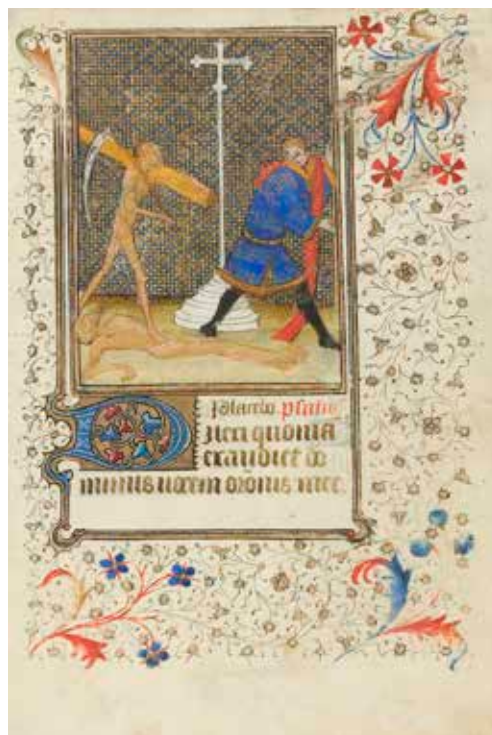 Placebo. psalm9
Dilexi quoniā
exaudiet do
minus uocem orōnis mee.